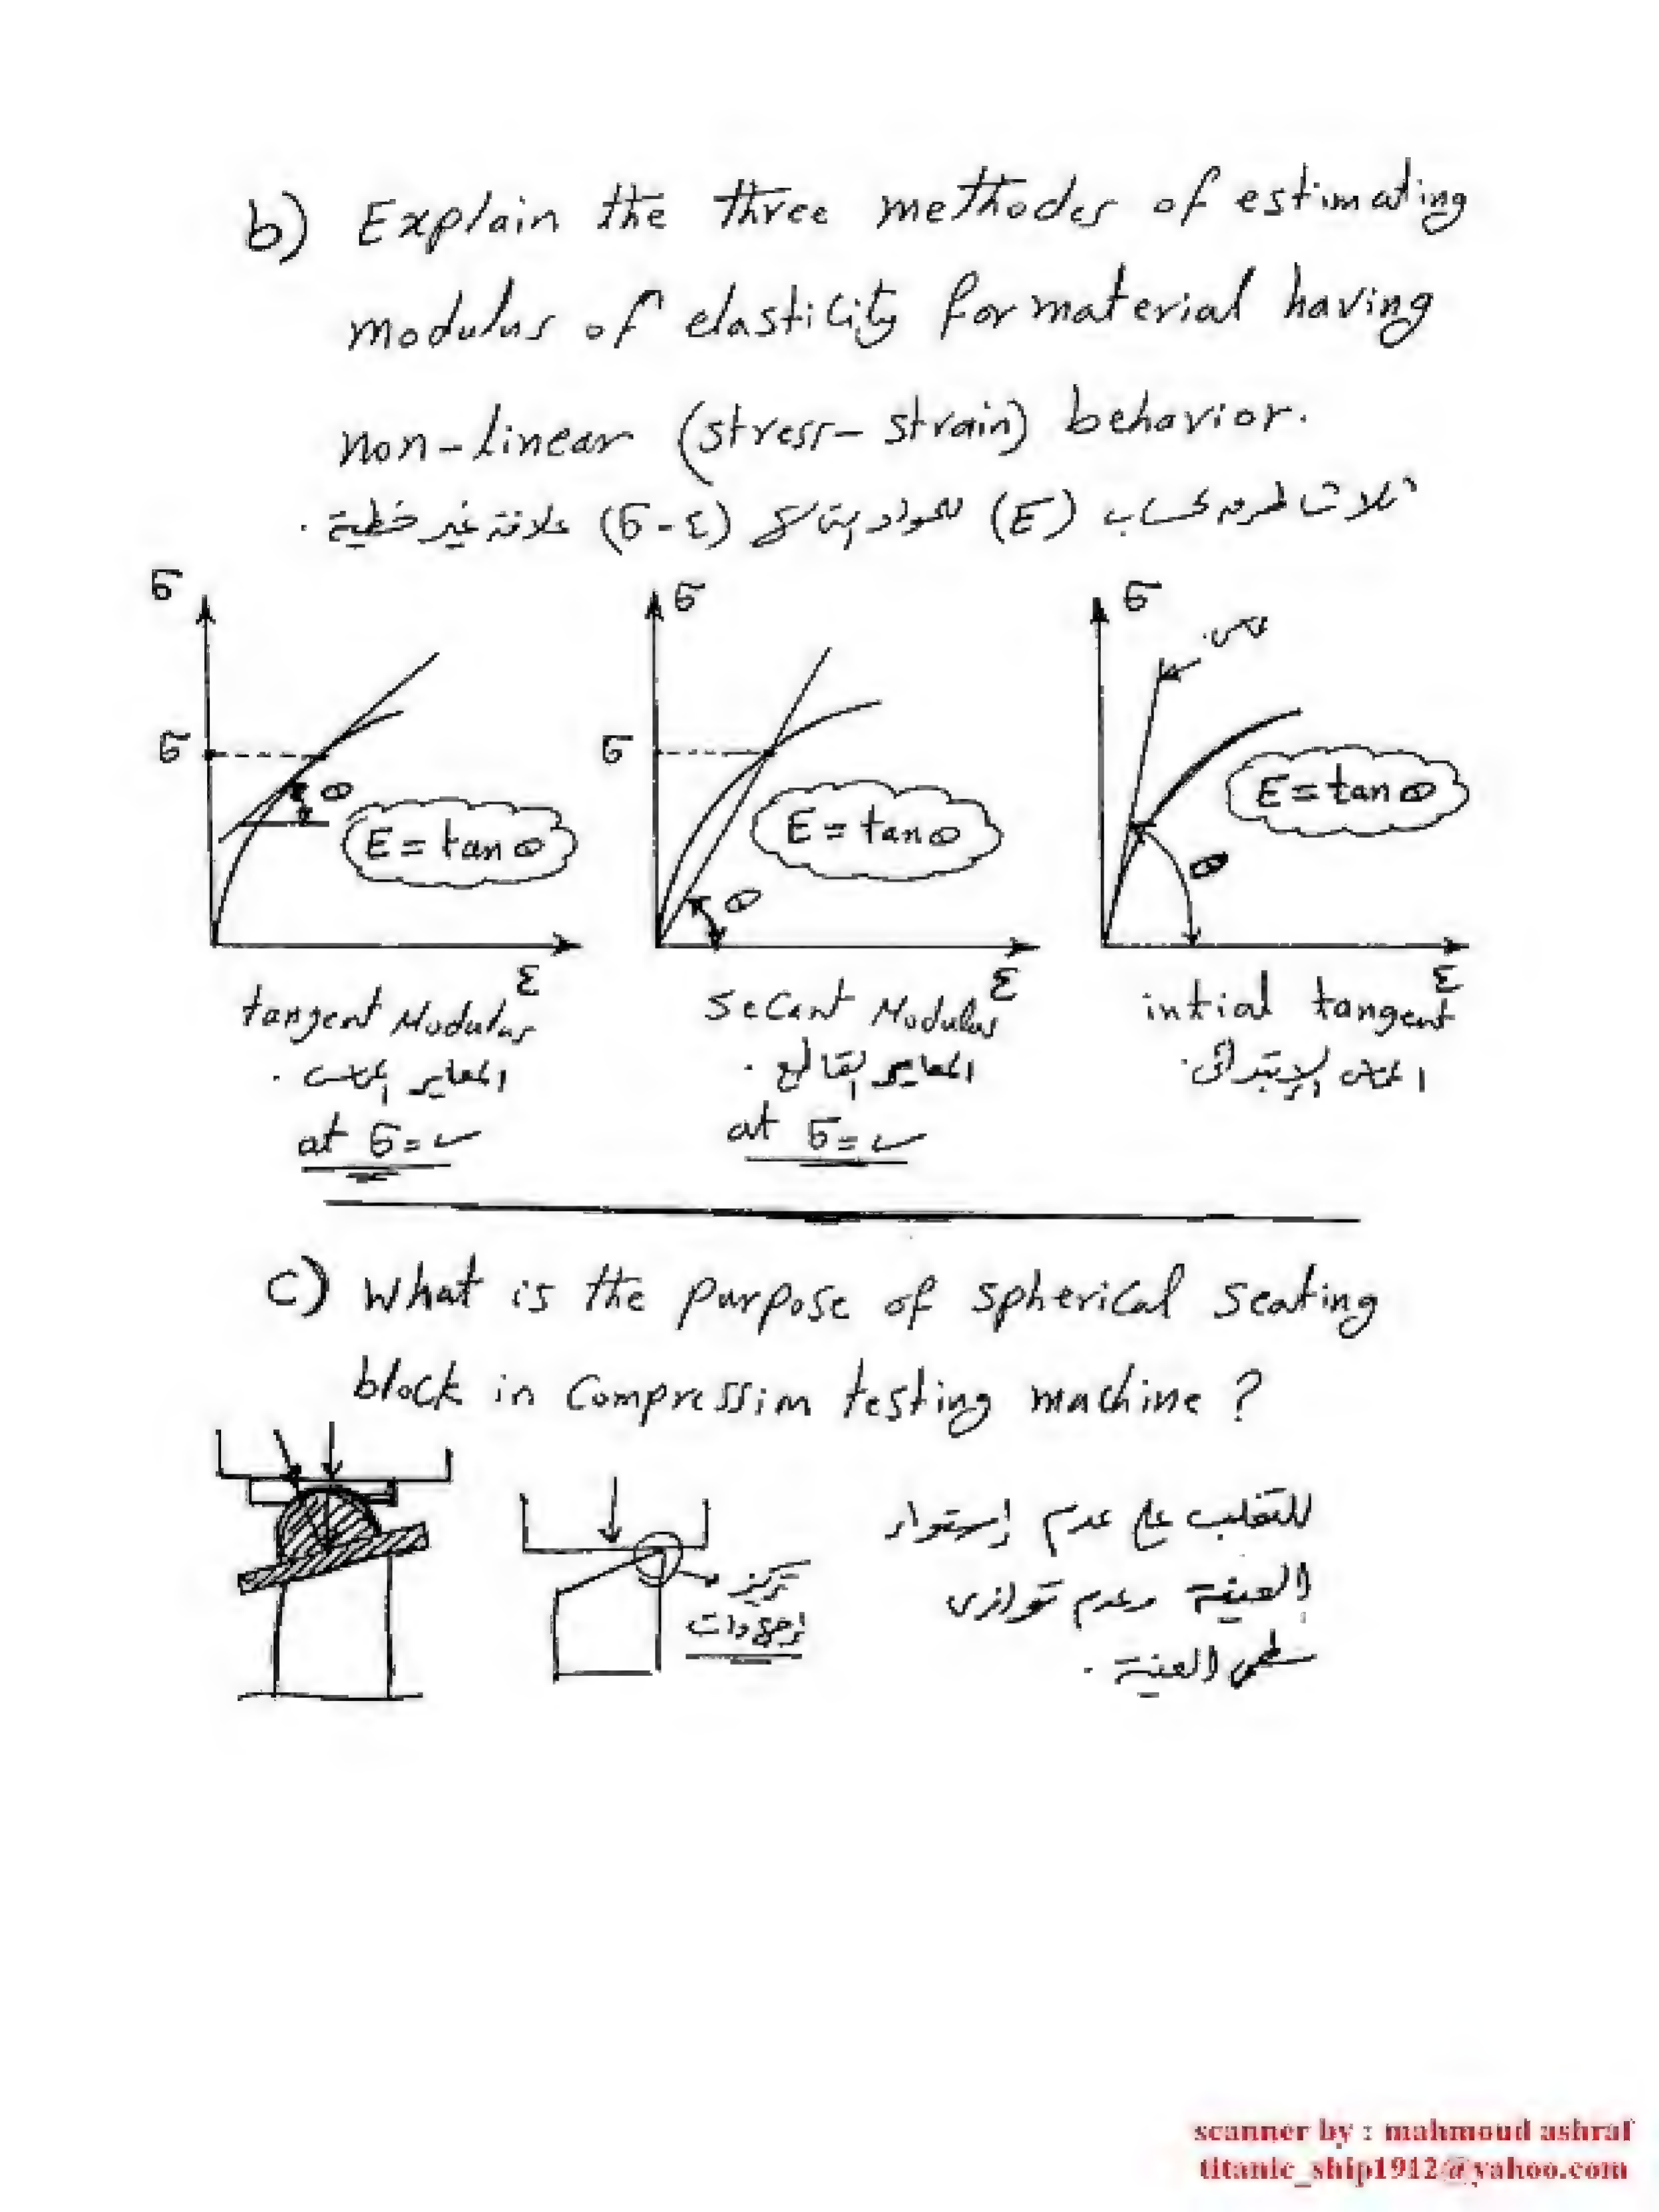 b) Explain the three methodes of estimating
modulus of elasticity for material having
non-linear (stress-strain) behavior.
ثلاث طرق لحساب (E) للمواد التي لها (σ-ε) علاقة غير خطية.
σ
σ
θ
E = tan θ
ε
tangent Modulus
المعاير المماس.
at σ = ✓
σ
σ
θ
E = tan θ
ε
Secant Modulus
المعاير القاطع.
at σ = ✓
σ
مماس
θ
E = tan θ
ε
intial tangent
المماس الإبتدائى.
c) What is the purpose of spherical seating
block in compression testing machine?
للتغلب على عدم إستواء
العينة وعدم توازى
سطحى العينة.
تركيز
إجهادات
scanner by : mahmoud ashraf
titanic_ship1912@yahoo.com